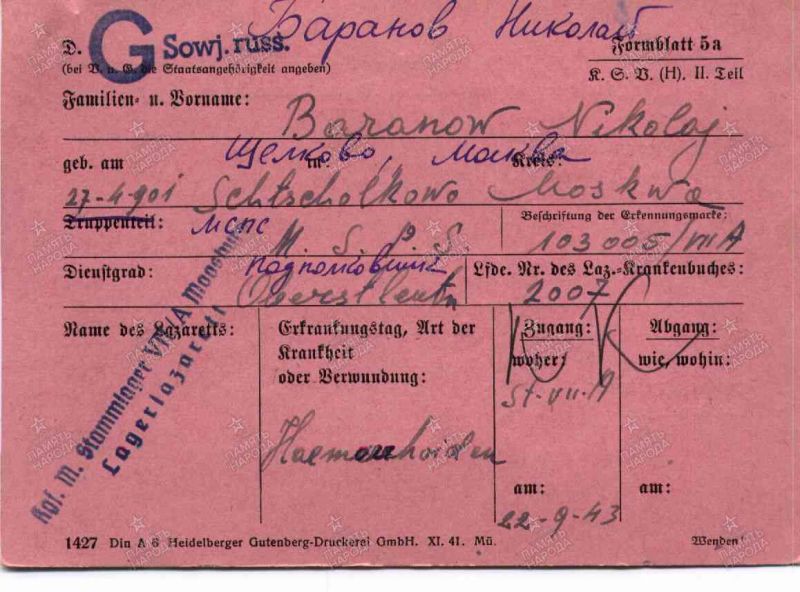 Баранов Николай
D. G Sowj. russ. Formblatt 5a
(bei V. u. G. die Staatsangehörigkeit angeben) K. S. V. (H). II. Teil
Familien- u. Vorname:
Baranow Nikolaj
Щелково, Москва
geb. am in: Kreis:
27-4-901 Schtscholkowo Moskwa
Truppenteil: мспс Beschriftung der Erkennungsmarke:
M. S. P. S. 103005/VIIA
Dienstgrad: подполковник Lfde. Nr. des Laz.-Krankenbuches:
Oberstleutn 2007
Name des Lazaretts: Erkrankungstag, Art der Krankheit oder Verwundung: Zugang: woher: Abgang: wie, wohin:
Kgf. M. Stammlager VII/A Moosburg
Lagerlazarett
St. VII A
Haemorrhoiden
am: am:
22-9-43
1427 Din A 6 Heidelberger Gutenberg-Druckerei GmbH. XI. 41. Mü. Wenden!
ПАМЯТЬ НАРОДА